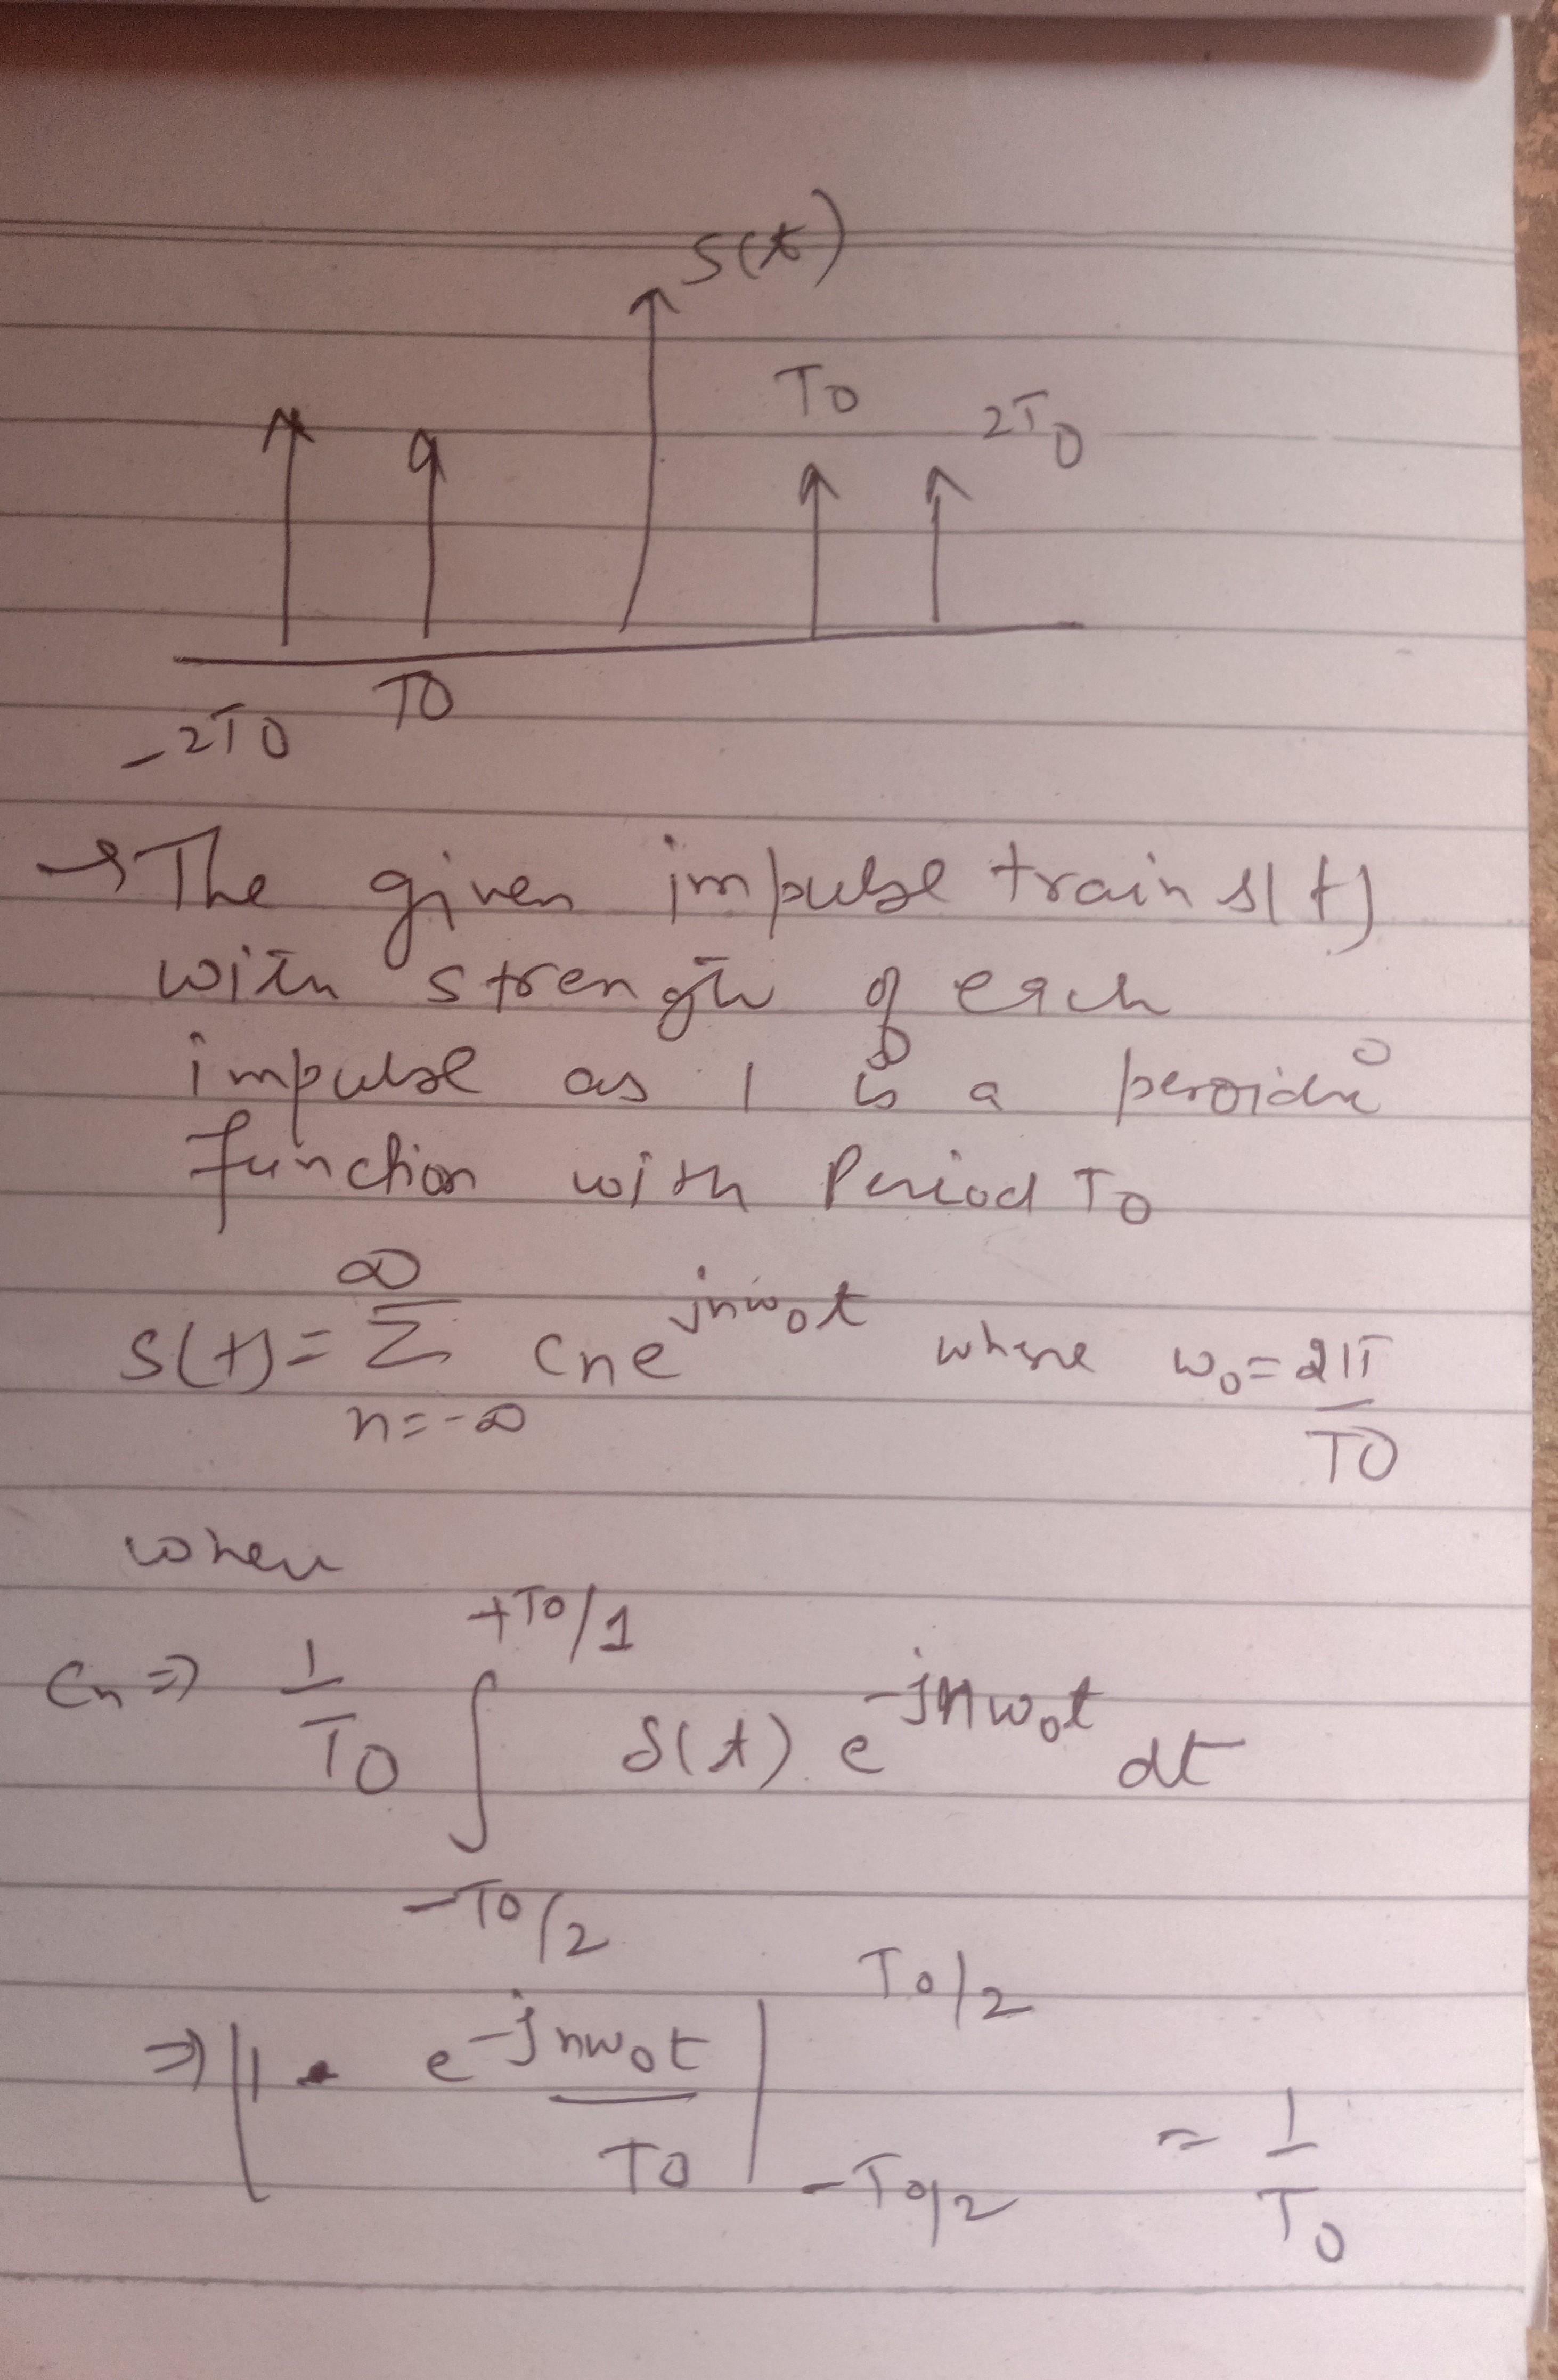 s(t)
T0
2T0
-2T0 T0
→ The given impulse train s(t)
with strength of each
impulse as 1 is a peroidic
function with Period T0
s(t) = ∞ Σ n=-∞ cn e^jnw0t where w0 = 2π/T0
where
Cn ⇒ 1/T0 ∫ -T0/2 +T0/1 δ(t) e^-jnw0t dt
⇒ |1 · e^-jnw0t / T0 | T0/2 -T0/2 = 1/T0